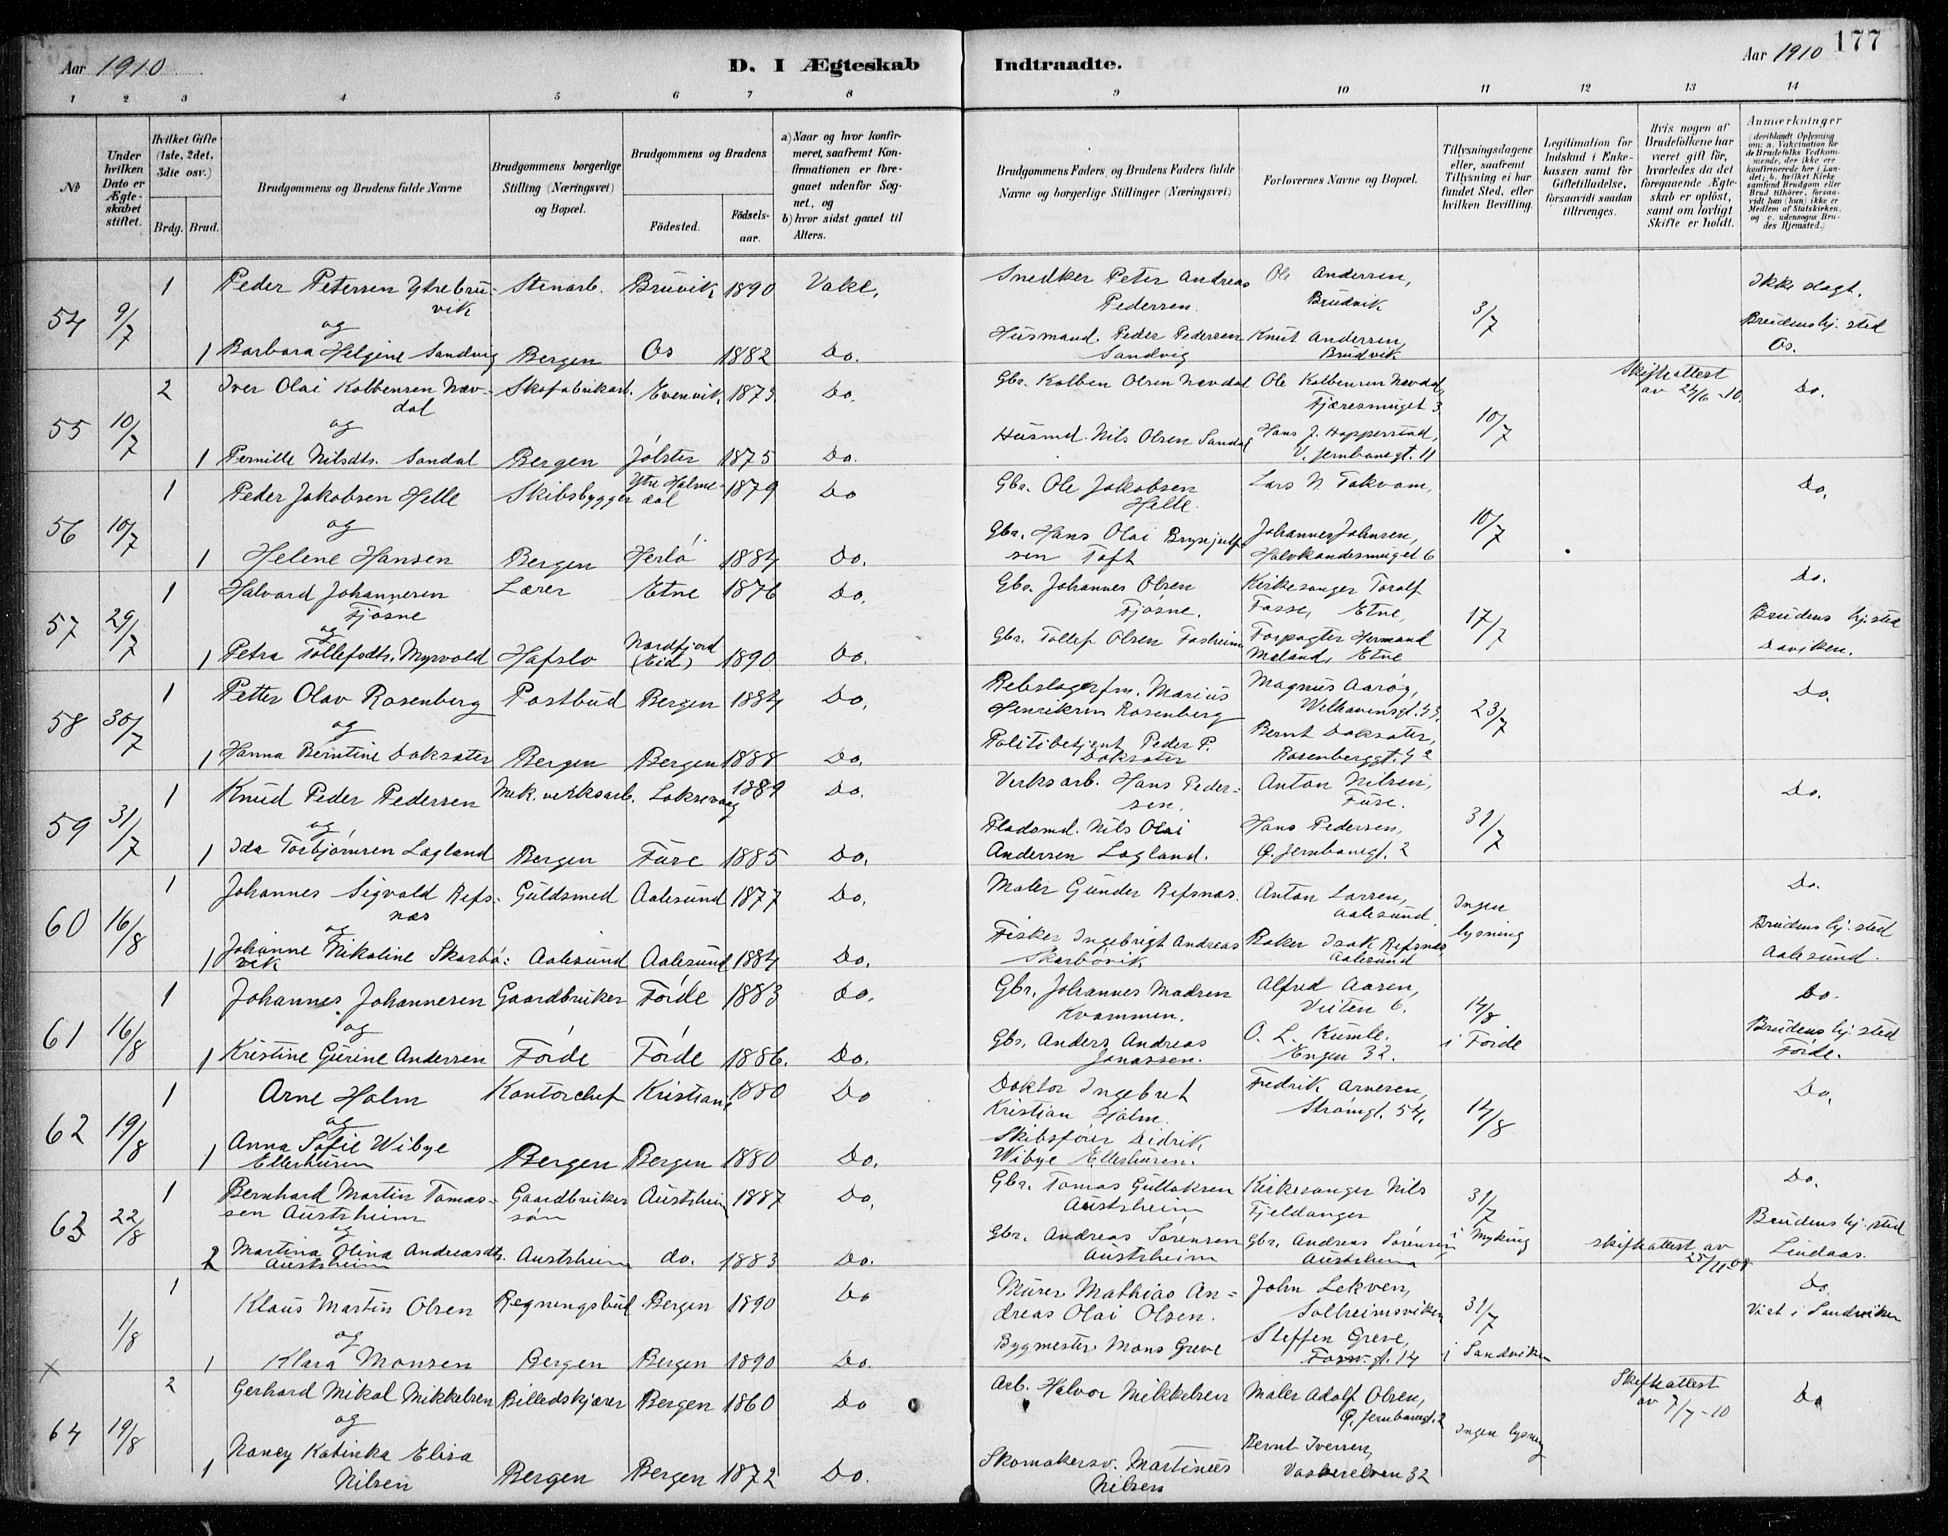 177
Aar 1910
D. I Ægteskab
Indtraadte.
Aar 1910
1 2 3 4 5 6 7 8 9 10 11 12 13 14
№
Under hvilken Dato er Ægteskabet stiftet.
Hvilket Gifte (1ste, 2det, 3die osv.)
Brdg. Brud.
Brudgommens og Brudens fulde Navne
Brudgommens borgerlige Stilling (Næringsvei) og Bopæl.
Brudgommens og Brudens
Födested.
Födsels-aar.
a) Naar og hvor konfirmeret, saafremt Konfirmationen er foregaaet udenfor Sognet, og
b) hvor sidst gaaet til Alters.
Brudgommens Faders og Brudens Faders fulde Navne og borgerlige Stillinger (Næringsvei)
Forlovernes Navne og Bopæl.
Tillysningsdagene eller, saafremt Tillysning ei har fundet Sted, efter hvilken Bevilling.
Legitimation for Indskud i Enkekassen samt for Giftetilladelse, forsaavidt saadan tiltrænges.
Hvis nogen af Brudefolkene har været gift för, hvorledes da det foregaaende Ægteskab er oplöst, samt om lovligt Skifte er holdt.
Anmærkninger (deriblandt Oplysning om: a. Vakcination for de Brudefolks Vedkommende, der ikke ere konfirmerede her i Landet; b. hvilket Kirkesamfund Brudgom eller Brud tilhörer, forsaavidt han (hun) ikke er Medlem af Statskirken, og c. udensogns Brudes Hjemsted.)
54 9/7 1 Peder Petersen Ytrebruvik Stenarb. Bruvik 1890 Vakc. Snedker Peter Andreas Pedersen. Ole Andersen, Brudvik 3/7 Ikke døgt.
og
1 Barbara Helgine Sandvig Bergen Os 1882 Do. Husmand. Peder Pedersen Sandvig Knut Andersen, Brudvik Brudens hj. sted Os.
55 10/7 2 Iver Olai Kolbensen Nævdal Skofabrikarb. Evenvik 1873 Do. Gbr. Kolben Olsen Nævdal Ole Kolbensen Nævdal, Fjæresmuget 3 10/7 Skifteattest av 24/6-10. Do.
og
1 Pernille Nilsdtr. Sandal Bergen Jølster 1875 Do. Husmd. Nils Olsen Sandal Hans J. Hopperstad, V. Jernbanegt. 11
56 10/7 1 Peder Jakobsen Helle Skibsbygger Ytre Holmedal 1879 Do Gbr. Ole Jakobsen Helle. Lars N Takvam, 10/7 Do.
og
1 Helene Hansen Bergen Herlø 1884 Do. Gbr. Hans Olai Brynjulfsen Toft Johannes Johnsen, Halvkandesmuget 6
57 29/7 1 Halvard Johannesen Fjøsne Lærer Etne 1876 Do. Gbr. Johannes Olsen Fjøsne. Kirkesanger Toralf Fosse, Etne, 17/7 Do.
og
1 Petra Tollefsdtr. Myrvold Hafslo Nordfjord (Eid) 1890 Do. Gbr. Tollef Olsen Fosheim Forpagter Hermand Meland, Etne Brudens hj. sted Daviken.
58 30/7 1 Petter Olav Rosenberg Postbud Bergen 1884 Do. Rebslagerfm. Marius Henriksen Rosenberg Magnus Aarøg, Welhavensgt. 23/7 Do.
og
1 Hanna Berntine Doksater Bergen Bergen 1888 Do. Politibetjent Peder P. Doksater Bernt Doksater, Rosenberggt.
59 31/7 1 Knud Peder Pedersen Mek. verksarb. Laksevaag 1889 Do. Verksarb. Hans Pedersen. Anton Nilsen, Fuse. 31/7 Do.
og
1 Ida Torbjørnsen Lagland Bergen Fuse 1885 Do. Pladsmd. Nils Olai Andersen Lagland. Hans Pedersen, Ø. Jernbanegt. 2
60 16/8 1 Johannes Sigvald Refsnæs Guldsmed Aalesund 1877 Do. Maler Gunder Refsnæs. Anton Larsen, Aalesund Ingen lysning Do.
og
1 Johanne Nikoline Skarbøvik Aalesund Aalesund 1884 Do. Fisker Ingebrigt Andreas Skarbøvik Baker Isak Refsnæs, Aalesund Brudens hj. sted Aalesund.
61 16/8 1 Johannes Johannesen Gaardbruker Førde 1883 Do. Gbr. Johannes Madsen Kvammen. Alfred Aasen, Veiten 6. 14/8 i Førde Do.
og
1 Kristine Gurine Andersen Førde Førde 1886. Do. Gbr. Anders Andreas Jonassen. O. L. Kumle. Engen 32. Brudens hj. sted Førde.
62 19/8 1 Arne Holm Kontorchef Kristiania 1880 Do Doktor Ingebret Kristian Holm. Fredrik Arnesen, Strømgt. 54. 14/8 Do.
og
1 Anna Sofie Wibye Ellerhusen Bergen Bergen 1880 Do. Skibsfører Didrik Wibye Ellerhusen. 
63 22/8 1 Bernhard Martin Tomassen Austrheim Gaardbrukersøn Austrheim 1887 Do. Gbr. Tomas Gullaksen Austrheim Kirkesanger Nils Fjeldanger 31/7 i Myking Do.
og
2 Martina Olina Andreasdtr. Austrheim Austrheim do. 1883 Do. Gbr. Andreas Sørensen Austrheim Gbr. Andreas Sørensen Austrheim skifteattest av 25/11-08 Brudens hj. sted Lindaas.
1/8 1 Klaus Martin Olsen Regningsbud Bergen 1890 Do Murer Mathias Andreas Olai Olsen. John Lekven, Solheimsviken 31/7 i Sandviken Do. Viet i Sandviken
og
× 1 Klara Monsen Bergen Bergen 1890 Do. Bygmester Mons Greve Steffen Greve, Fossv. gt. 14
64 19/8 2 Gerhard Mikal Mikkelsen Billedskjærer Bergen 1860 Do Arb. Halvor Mikkelsen Maler Adolf Olsen, Ø. Jernbanegt. 2 Ingen lysning Skifteattest av 7/7-10 Do
og
1 Nancy Katinka Elisa Nilsen Bergen Bergen 1872 Do. Skomakersv. Martinus Nilsen Bernt Iversen, Vaskerelven 32